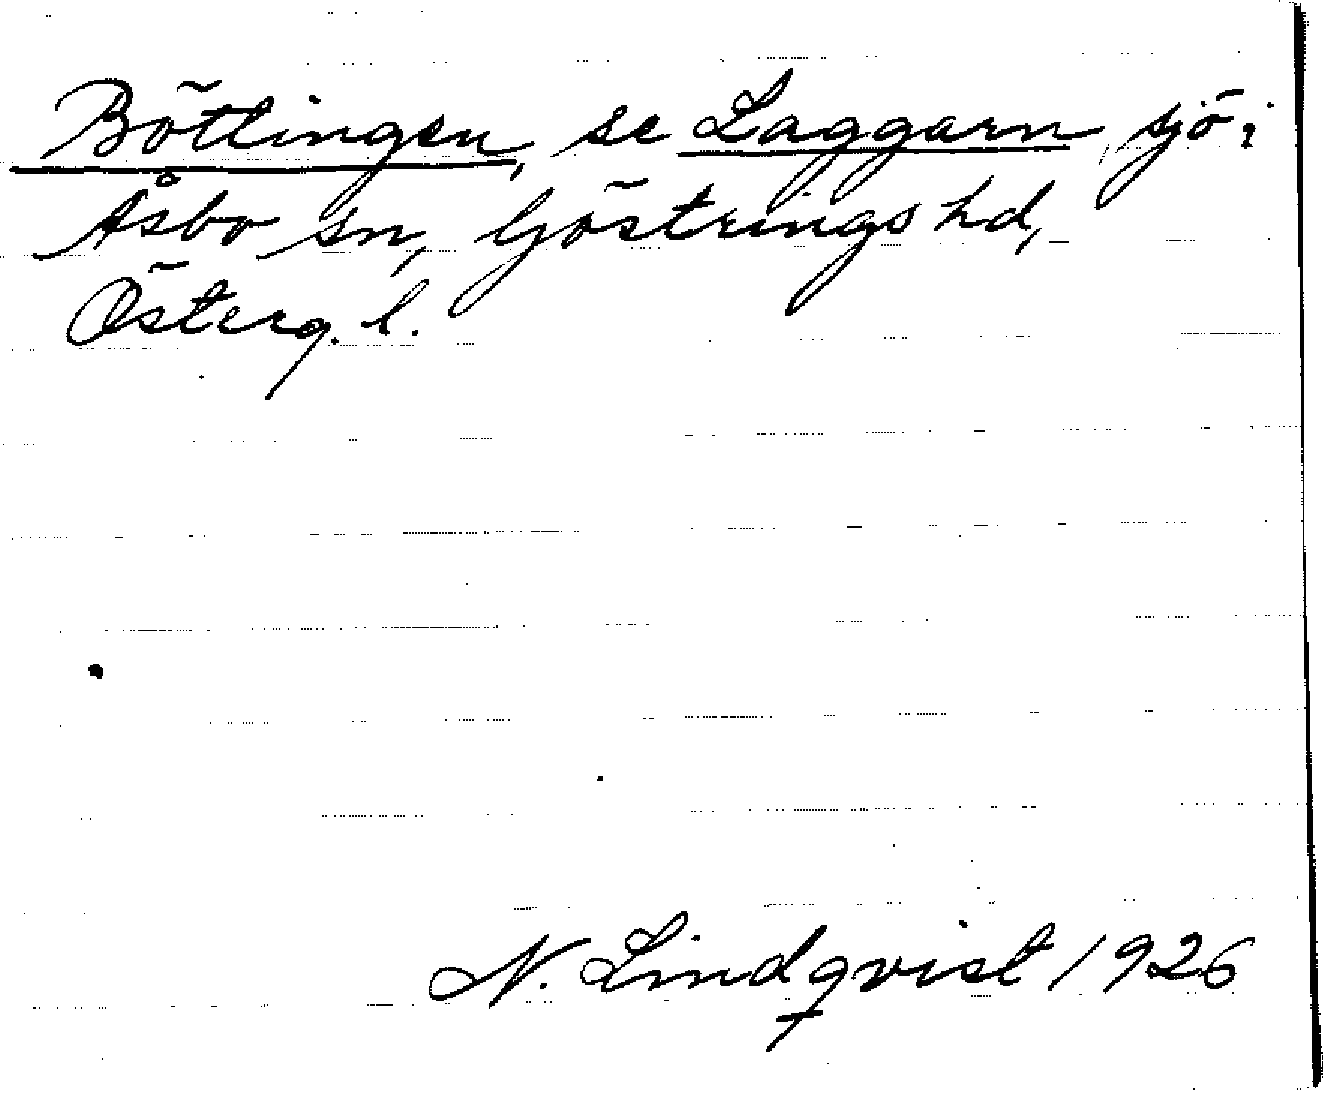 Bötlingen, se Laggarn, sjö i
Åsbo sn, Göstrings hd,
Österg. l.
N. Lindqvist 1926